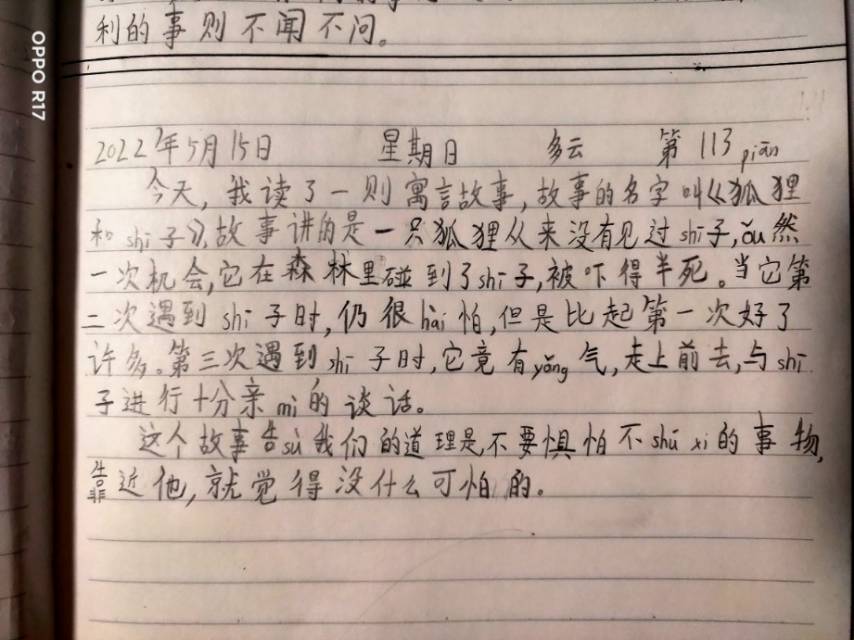 利的事则不闻不问。
2022年5月15日 星期日 多云 第113piān
今天,我读了一则寓言故事,故事的名字叫《狐狸
和shī子》,故事讲的是一只狐狸从来没有见过shī子,ǒu然
一次机会,它在森林里碰到了shī子,被吓得半死。当它第
二次遇到shī子时,仍很hài怕,但是比起第一次好了
许多。第三次遇到shī子时,它竟有yǒng气,走上前去,与shī
子进行十分亲mì的谈话。
这个故事告sù我们的道理是,不要惧怕不shū xi的事物,
靠近他,就觉得没什么可怕的。
OPPO R17